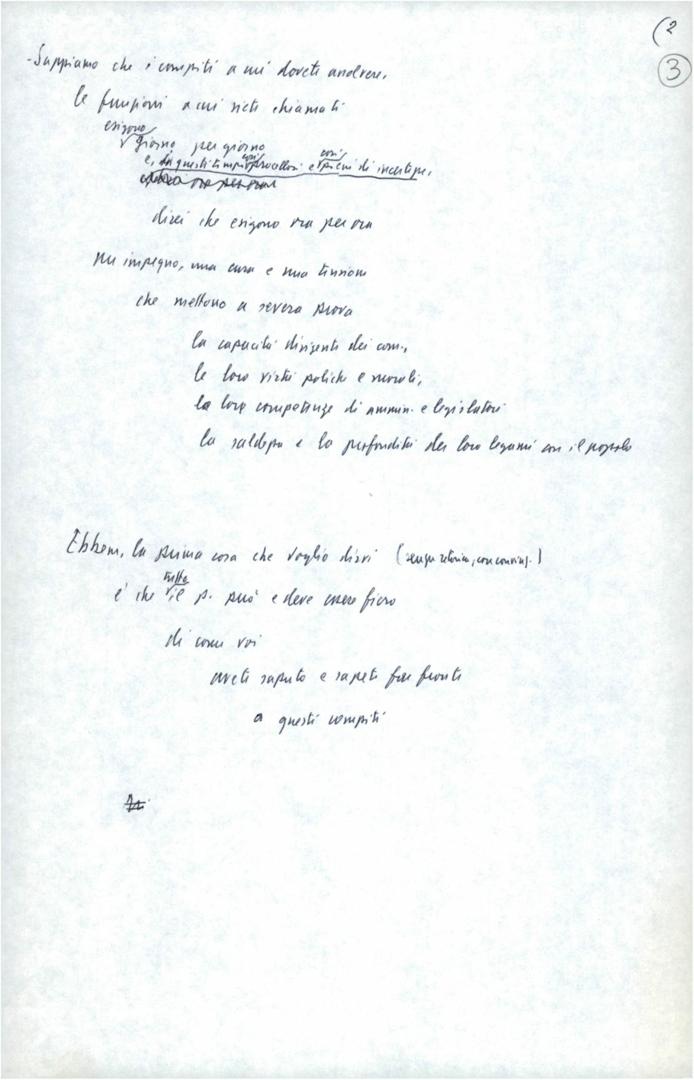 (2
3
- Sappiamo che i compiti a cui dovete assolvere,
le funzioni a cui siete chiamati
esigono
giorno per giorno
così così
e, in questi tempi procellosi e pieni di incertezze,
direi che esigono ora per ora
un impegno, una cura e una tensione
che mettono a severa prova
la capacità dirigente dei com.,
le loro virtù politiche e morali,
la loro competenza di ammin. e legislatori
la saldezza e la profondità dei loro legami con il popolo
Ebbene, la prima cosa che voglio dirvi (senza retorica, con convinz.)
tutto
è che il p. può e deve essere fiero
di come voi
avete saputo e sapete far fronte
a questi compiti